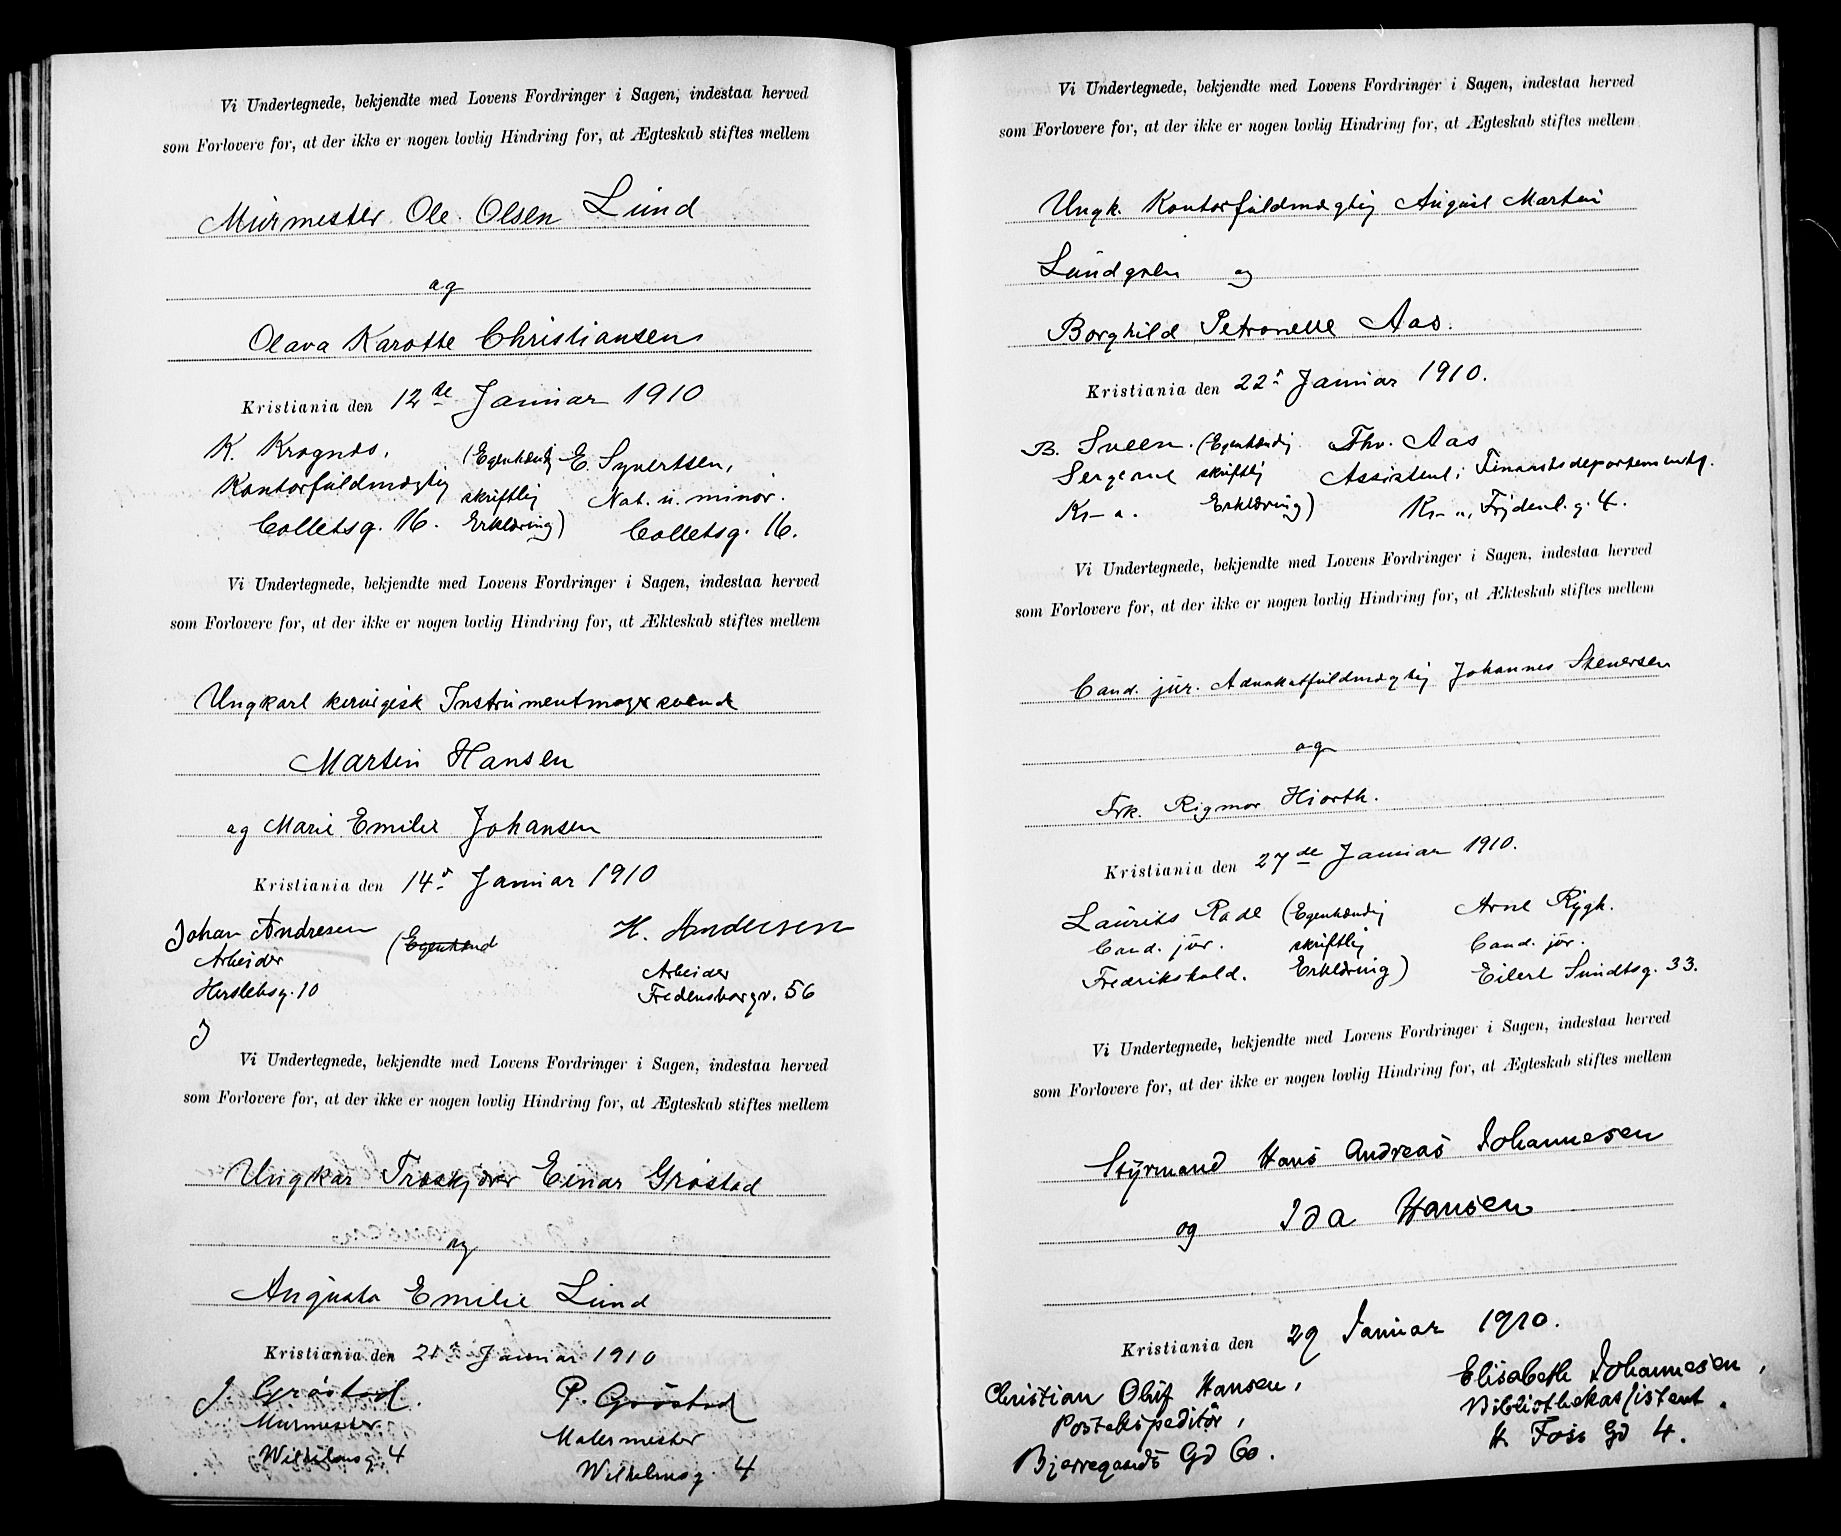 Vi Undertegnede, bekjendte med Lovens Fordringer i Sagen, indestaa herved
som Forlovere for, at der ikke er nogen lovlig Hindring for, at Ægteskab stiftes mellem
Murmester Ole Olsen Lund
og
Olava Karotte Christiansen
Kristiania den 12te Januar 1910
K. Krognæs, (Egenhændig E. Syvertsen,
Kontorfuldmægtig skriftlig Nat. u. minor.
Colletsg. 16. Erklæring) Colletsg. 16.
Vi Undertegnede, bekjendte med Lovens Fordringer i Sagen, indestaa herved
som Forlovere for, at der ikke er nogen lovlig Hindring for, at Ækteskab stiftes mellem
Ungkarl kirurgisk Instrumentmagersvend
Martin Hansen
og Marie Emilie Johansen
Kristiania den 14d Januar 1910
Johan Andresen (Egenhænd H. Andersen
Arbeider Arbeider
Herslebsg. 10 Fredensborgv. 56
J
Vi Undertegnede, bekjendte med Lovens Fordringer i Sagen, indestaa herved
som Forlovere for, at der ikke er nogen lovlig Hindring for, at Ægteskab stiftes mellem
Ungkar Træskjærer Einar Grøstad
og
Augusta Emilie Lund
Kristiania den 21d Januar 1910
J. Grøstad. P. Grøstad
Murmester Malermester
Wilhelmsg. 4 Wilhelmsg. 4
Vi Undertegnede, bekjendte med Lovens Fordringer i Sagen, indestaa herved
som Forlovere for, at der ikke er nogen lovlig Hindring for, at Ægteskab stiftes mellem
Ungk. Kontorfuldmægtig August Martin
Lundgren og
Borghild Petronelle Aas.
Kristiania den 22d Januar 1910.
B. Sveen. (Egenhændig Thv. Aas
Sergeant skriftlig Assistent i Finantsdepartementet.
Kr-a. Erklæring) Kr-a, Frydenl. g. 4.
Vi Undertegnede, bekjendte med Lovens Fordringer i Sagen, indestaa herved
som Forlovere for, at der ikke er nogen lovlig Hindring for, at Ækteskab stiftes mellem
Cand. jur. Advokatfuldmægtig Johannes Stenersen
og
Frk. Rigmor Hiorth.
Kristiania den 27de Januar 1910.
Laurits Rade (Egenhændig Arne Rygh.
Cand. jur. skriftlig Cand. jur.
Fredrikshald. Erklæring) Eilert Sundtsg. 33.
Vi Undertegnede, bekjendte med Lovens Fordringer i Sagen, indestaa herved
som Forlovere for, at der ikke er nogen lovlig Hindring for, at Ægteskab stiftes mellem
Styrmand Hans Andreas Johannesen
og Ida Hansen
Kristiania den 29 Januar 1910.
Christian Oluf Hansen, Elisabeth Johannesen,
Postekspeditør, Bibliothekassistent.
Bjerregaards Gd 60. H. Foss Gd 4.